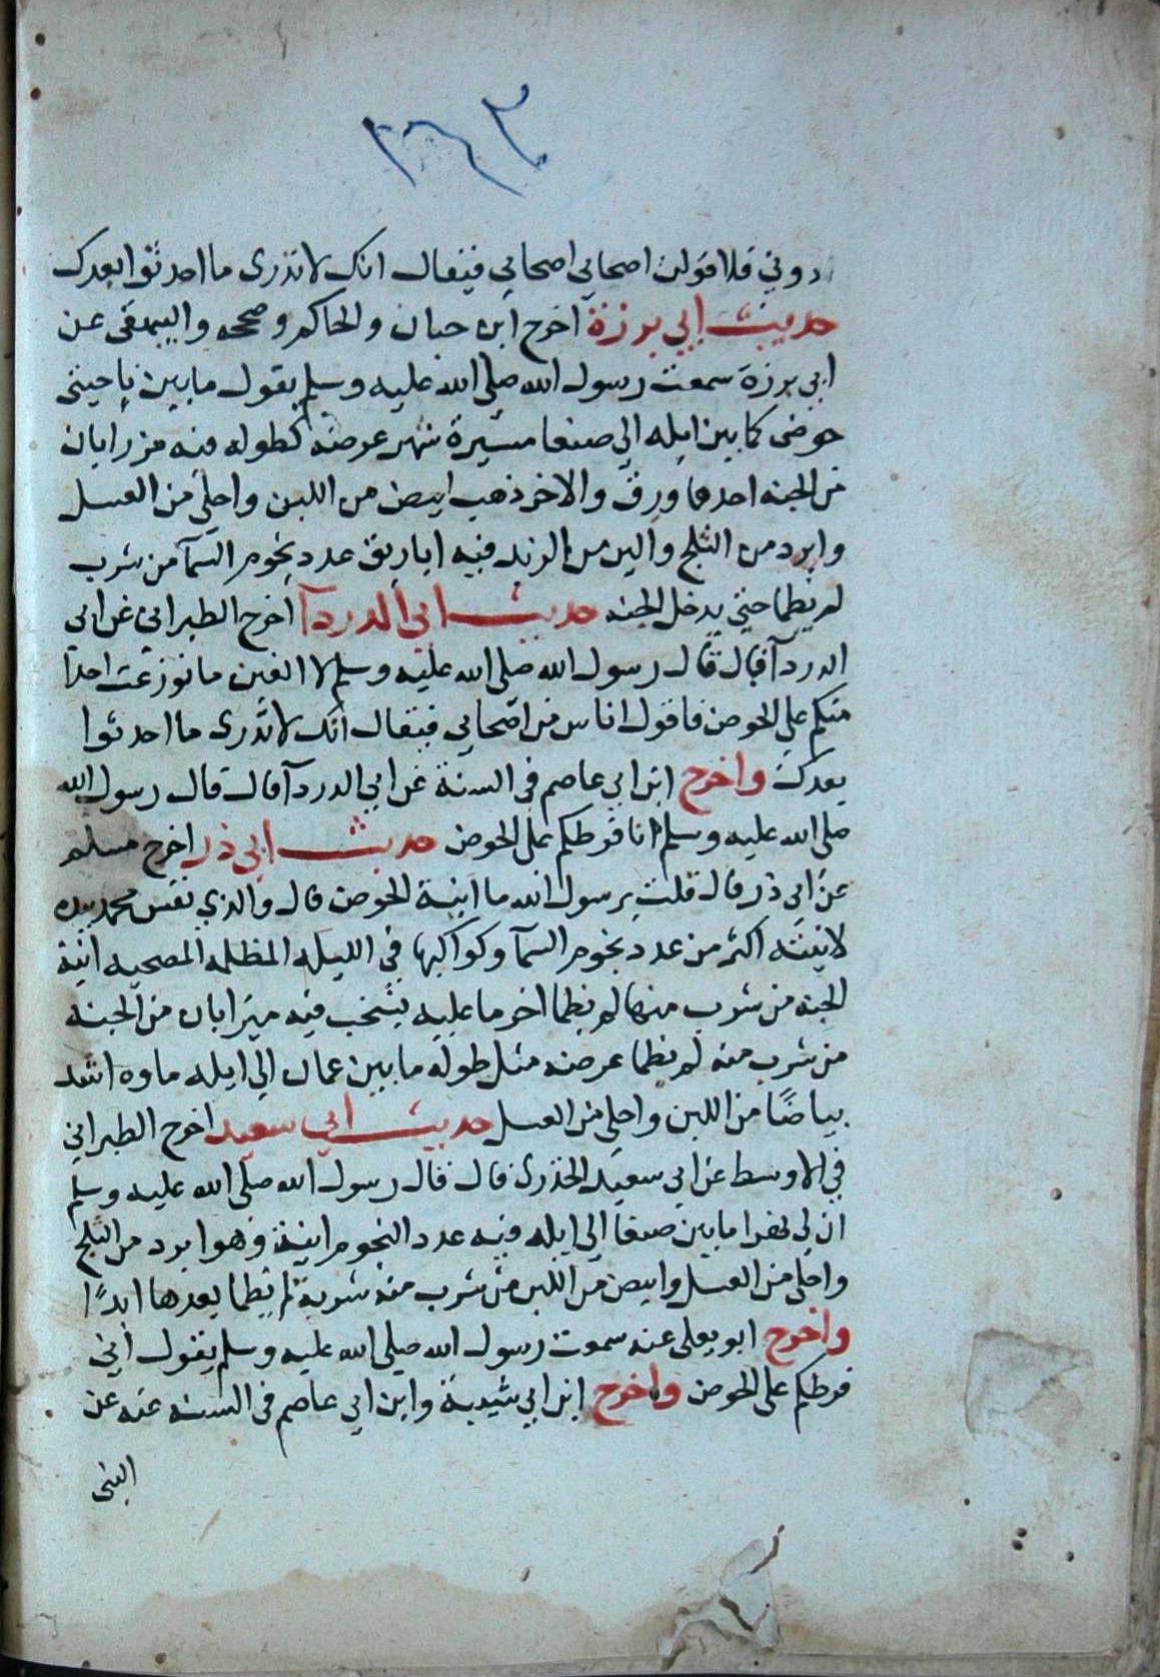 دوني فلاقولن اصحابي اصحابي فيقال انك لا تدرى ما احدثوا بعدك
حديث ابي برزة اخرج ابن حبان والحاكم وصححه والبيهقى عن
ابي برزة سمعت رسول الله صلى الله عليه وسلم يقول ما بين ناحيتى
حوضى كما بين ايله الى صنعا مسيرة شهر عرضه كطوله فيه مزرابان
من الجنه احدهما ورق والاخر ذهب ابيض من اللبن واحلى من العسل
وابرد من الثلج والين من الزبد فيه اباريق عدد نجوم السمآ من شرب
لم يظما حتى يدخل الجنه حديث ابي الدردآ اخرج الطبراني عن ابي
الدردآ قال قال رسول الله صلى الله عليه وسلم لا الفين ما نوزعت احدا
منكم على الحوض فاقول اناس من اصحابي فيقال انك لا تدرى ما احدثوا
بعدك واخرج ابن ابي عاصم فى السنة عن ابي الدردآ قال قال رسول الله
صلى الله عليه وسلم انا فرطكم على الحوض حديث ابي ذر اخرج مسلم
عن ابي ذر قال قلت يرسول الله ما انية الحوض قال والذي نفس محمد بيده
لانيته اكثر من عدد نجوم السمآ وكواكبها في الليله المظلمه المصحيه انية
الجنه من شرب منها لم يظما اخر ما عليه يشخب فيه ميزابان من الجنة
من شرب منه لم يظما عرضه مثل طوله ما بين عمان الى ايله ماوه اشد
بياضًا من اللبن واحلى من العسل حديث ابي سعيد اخرج الطبراني
في الاوسط عن ابي سعيد الخدرى قال قال رسول الله صلى الله عليه وسلم
ان لي نهرا ما بين صنعا الى ايله فيه عدد النجوم انية وهو ابرد من الثلج
واحلى من العسل وابيض من اللبن من شرب منه شربة لم يظما بعدها ابدًا
واخرج ابو يعلى عنه سمعت رسول الله صلى الله عليه وسلم يقول اني
فرطكم على الحوض واخرج ابن ابي شيبة وابن ابي عاصم فى السنه عنه عن
النبى